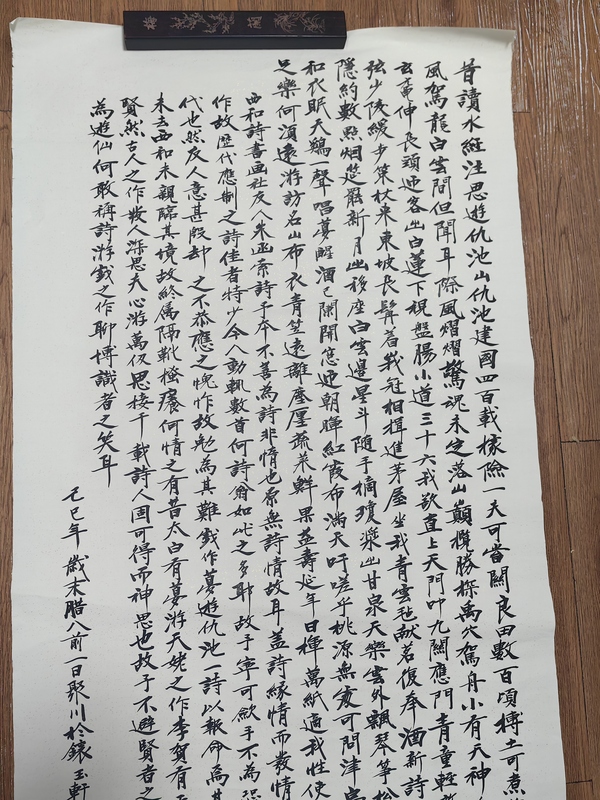 昔讀水經注思遊仇池山仇池建國四百載據險一夫可當關良田數百頃搏土可煮
風駕龍白雲間但聞耳際風熠熠驚魂未定落山巔攬勝探禹穴駕舟小有天神
玄龜伸長頸迎客出白蓮下視盤腸小道三十六我欲直上天門叩九關應門青童輕
弦少陵緩步策杖來東坡長髯著我冠相揖進茅屋坐我青雲毡獻茗復奉酒新詩
隱約數點烟筵罷新月出移座白雲邊星斗隨手摘瓊漿出甘泉天樂雲外飄琴箏松
和衣眠天鷄一聲唱夢醒酒已闌開窓迎朝暉紅霞布滿天吁嗟乎桃源無處可問津
足樂何須遠游訪名山布衣青笠遠離塵囂蔬菜鮮果益壽延年日揮萬紙適我性使
西和詩書画社友人來函索詩予本不善為詩非惰也原無詩情故耳蓋詩緣情而發情
作故歷代應制之詩佳者特少今人動輒數首何詩翁如此之多耶故予寧可歛手不為
代也然友人意甚殷却之不恭應之愧怍故勉為其難戲作夢遊仇池一詩以報命為其
未去西和未親歸其境故終屬隔靴搔癢何情之有昔太白有夢游天姥之作李賀有
賢然古人之作發人深思夫心游萬仞思接千載詩人固可得而神思也故予不避賢者之
為遊仙何敢稱詩游戲之作聊博識者之笑耳
己巳年歲末腊八前一日聚川於錶玉軒